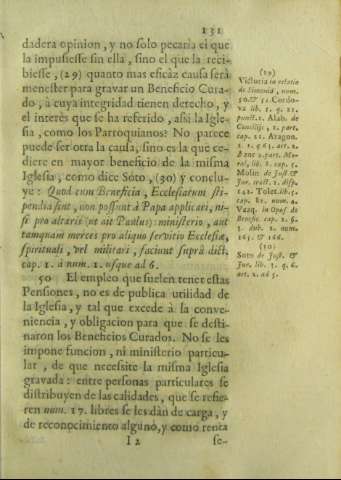 131
dadera opinion, y no solo pecaria el que
la impusiesse sin ella, sino el que la reci-
biesse, (29) quanto mas eficàz causa serà
menester para gravar un Beneficio Cura-
do, à cuya integridad tienen derecho, y
el interès que se ha referido, assi la Igle-
sia, como los Parroquianos? No parece
puede ser otra la causa, sino es la que ce-
diere en mayor beneficio de la misma
Iglesia, como dice Soto, (30) y conclu-
ye: Quod cum Beneficia, Ecclesiarum sti-
pendia sint, non possunt à Papa applicari, ni-
si pro altarii (ut ait Paulus) ministerio, aut
tamquam merces pro aliquo servitio Ecclesiæ,
spirituali, vel militari, faciunt suprà dict.
cap. 1. à num. 1. usque ad 6.
50 El empleo que suelen tener estas
Pensiones, no es de publica utilidad de
la Iglesia, y tal que excede à la conve-
niencia, y obligacion para que se desti-
naron los Beneficios Curados. No se les
impone funcion, ni ministerio particu-
lar, de que necessite la misma Iglesia
gravada: entre personas particulares se
distribuyen de las calidades, que se refie-
ren num. 17. libres se les dàn de carga, y
de reconocimiento alguno, y como renta
I 2
se-
(29)
Victoria in relectio
de Simonia, num.
50. & 51. Cordo-
va lib. 1. q. 21.
punct. 2. Alab. de
Conciliis, 2. part.
cap. 21. Aragon.
2. 2. q. 63. art. 2.
Mor-
ral, lib. 2. cap. 5.
Molin de Just. &
Jur. tract. 2. disp.
142. Tolet. lib. 5.
cap. 82. num. 4.
Vazq. in Opusc. de
Benefic. cap. 2. §.
3. dub. 2. num.
165. & 166.
(30)
Soto de Just. &
Jur. lib. 3. q. 6.
art. 2. ad 5.